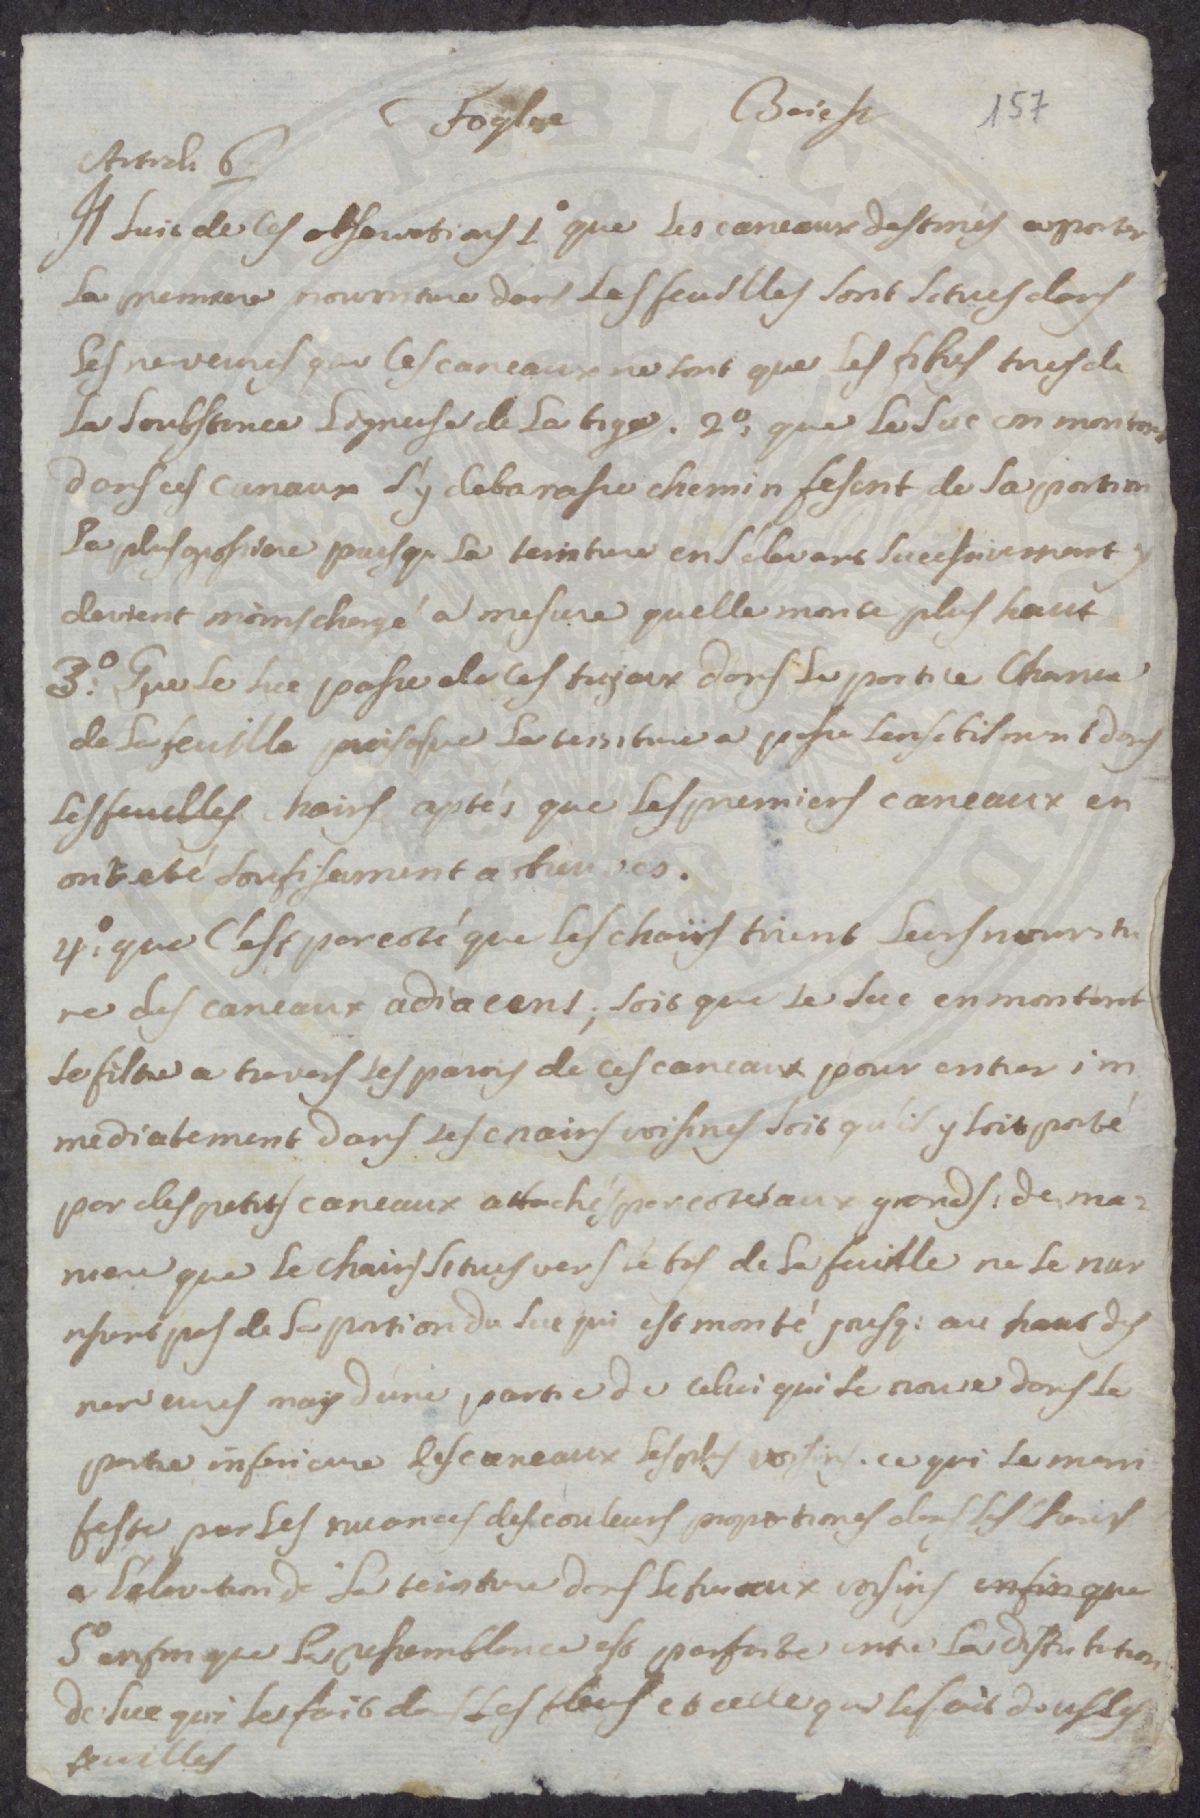 Foglie Baiest 157
Articl. 6
Il suit de ces observations 1° que les caneaux destinés a porter
la premiere nourriture dans les feuilles sont situes dans
les nerveures que ces caneaux ne sont que les fibres tires de
la soubstance ligneuse de la tige. 2°. que le suc en montant
dans ces canaux s'y debarasse chemin fesent de sa portion
la plus grossiere puisqu. la teinture en s'elevant successivement y
devient moins chargé a mesure quelle monte plus haut
3.° Que le suc passe de ces tujaux dans la portie charnue
de la feuille puisque la teinture a passé sensiblement dans
les feuilles chairs aptés que les premiers caneaux en
ont eté soufisamment abreuves.
4°. que c'est par coté que les chairs tirent leurs nourritu
re des caneaux adiacens; soit que le suc en montant
se filtre a travers les parois de ces caneaux pour entrer im
mediatement dans les chairs voisines soit qu'il y soit porté
par des petits caneaux attachés par cotes aux grands: de ma=
niere que le chairs situes vers le bas de la feuille ne se nur
risent pas de la portion du suc qui est monté jusq: au haut des
nerveures mais d'une partie de celui qui se trouve dans la
partie inferieure des caneaux les plus voisins. ce qui se mani
feste par les nuances des couleurs proportiones dans les chairs
a l'élevation de la teinture dans le tuiaux voisins enfin que
5° enfin que la ressemblance est parfaite entre la distribution
de suc qui se fait dans les fleurs et celle que se fait dans les
feuilles